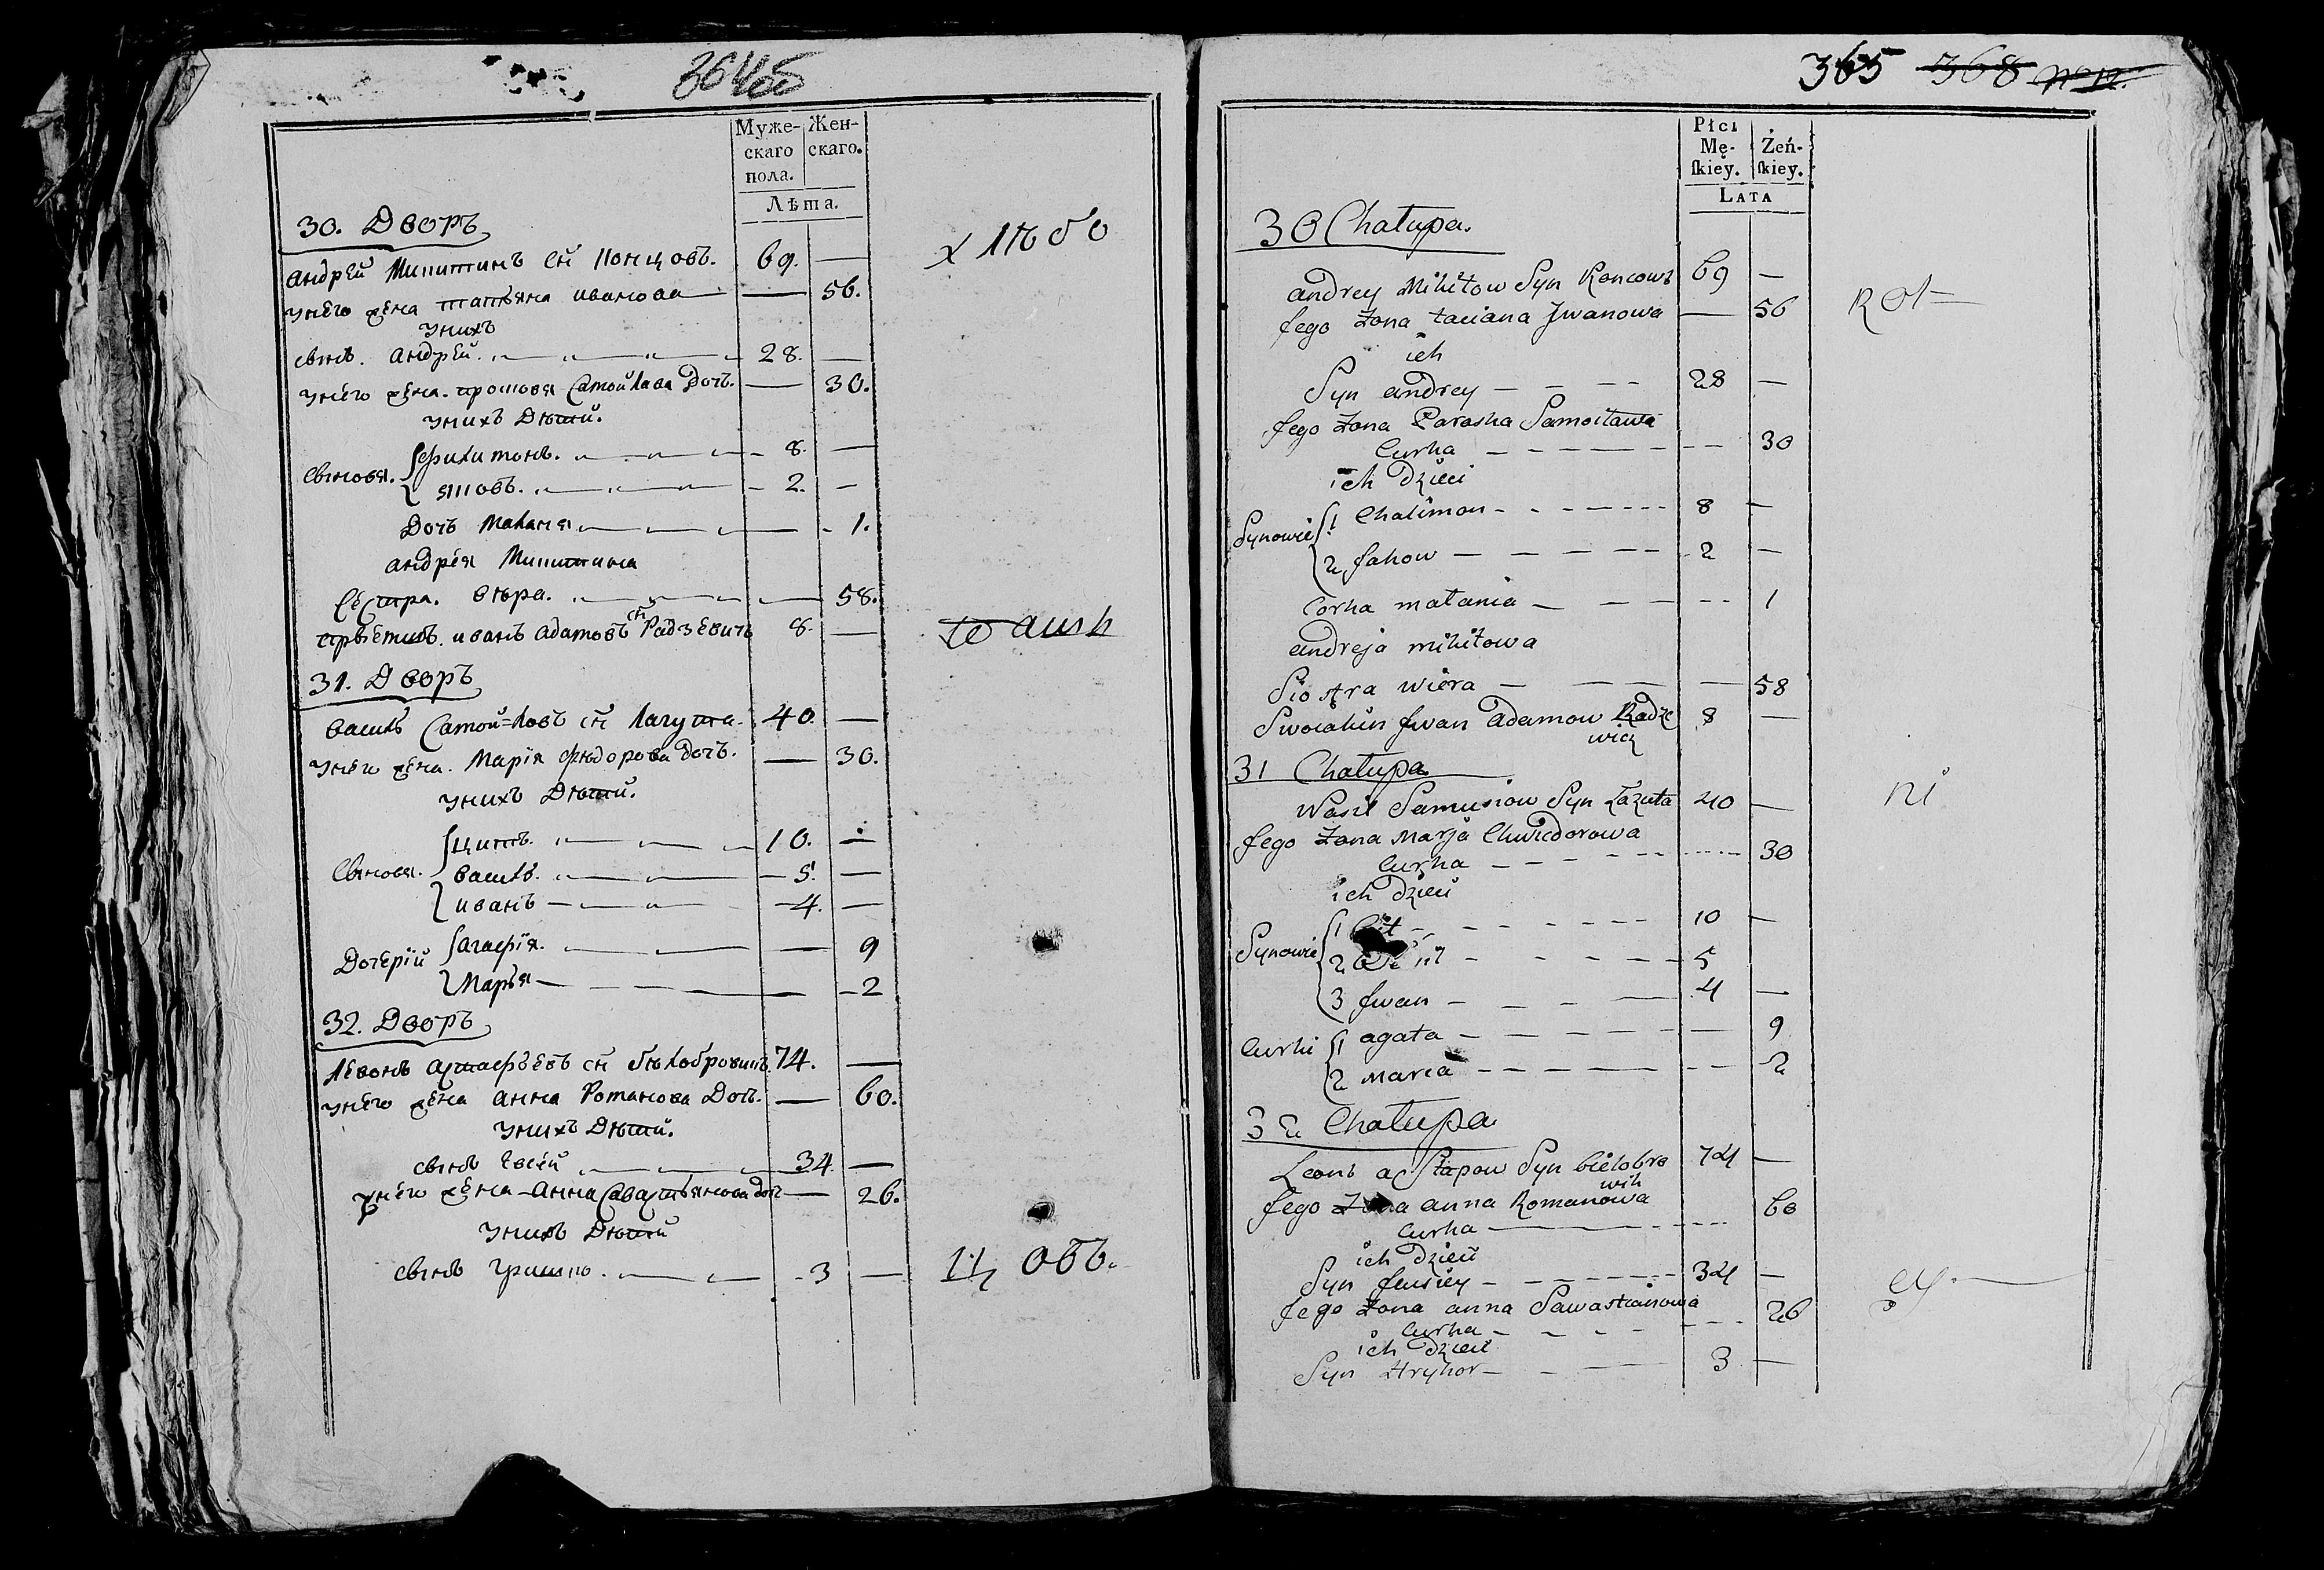 364об
Муже-
скаго
пола.
Жен-
скаго.
Лѣта.
30. Дворъ
андрей Микитинъ сн Концовъ. 69. —
унего жена татьяна иванова — 56.
унихъ
сынъ. андрей. 28. —
унего жена. просковя Самойлава Дочь. — 30.
унихъ Дѣтй.
сыновя. филимонъ. 8. —
яковъ. 2. —
Дочь Маланя — 1.
андрея Микитина
Сестра. вѣра. — 58.
прыемышъ. иванъ адамовъ сн Радзевичъ 8. —
31. Дворъ
василь Самой=ловъ сн Лагута. 40. —
унего жена. Марія фѣдорова дочь. — 30.
унихъ Дѣтй.
Сыновя. цитъ. 10. —
василь. 5. —
иванъ 4. —
Дочерій агафія. — 9
Марья — 2
32. Дворъ
Левонъ астафьевъ сн бѣлобровикъ 74. —
унего жена анна Романова Дочь. — 60.
унихъ Дѣтй.
сынъ 34 —
унего жена анна Савастьянова доч — 26.
унихъ Дѣтй
сынъ гришко. 3 —
365 368 № 12.
Płci
Mę-
ſkiey.
Żeń-
ſkiey.
LATA
30 Chałupa.
andrey Mikitow Syn Koncowъ 69 —
Jego żona taciana Jwanowa — 56
ich
Syn andrey 28 —
Jego żona Paraska Samoiława
Curka 30
ich Dzieci
Synowie 1 Chalimon 8 —
2 Jakow 2 —
Corka małania 1
andreja mikitowa
Siostra wiera — 58
Jwan adamow Radze 8 —
wicz
31 Chałupa
Wasil Samusiow Syn Łazuta 40 —
Jego żona Marja Chwiedorowa
Curka 30
ich Dzieci
Synowie 1 Cit 10 —
2 5
3 Jwan 4 —
Curki 1 agata — 9
2 Maria 2
32 Chałupa
Leonъ astapow Syn biełobro 74 —
wik
Jego żona anna Romanowa 60
Curka
ich Dzieci
Syn 34 —
Jego żona anna Sawastianowa 26
Curka
ich Dzieci
Syn Hryhor 3 —